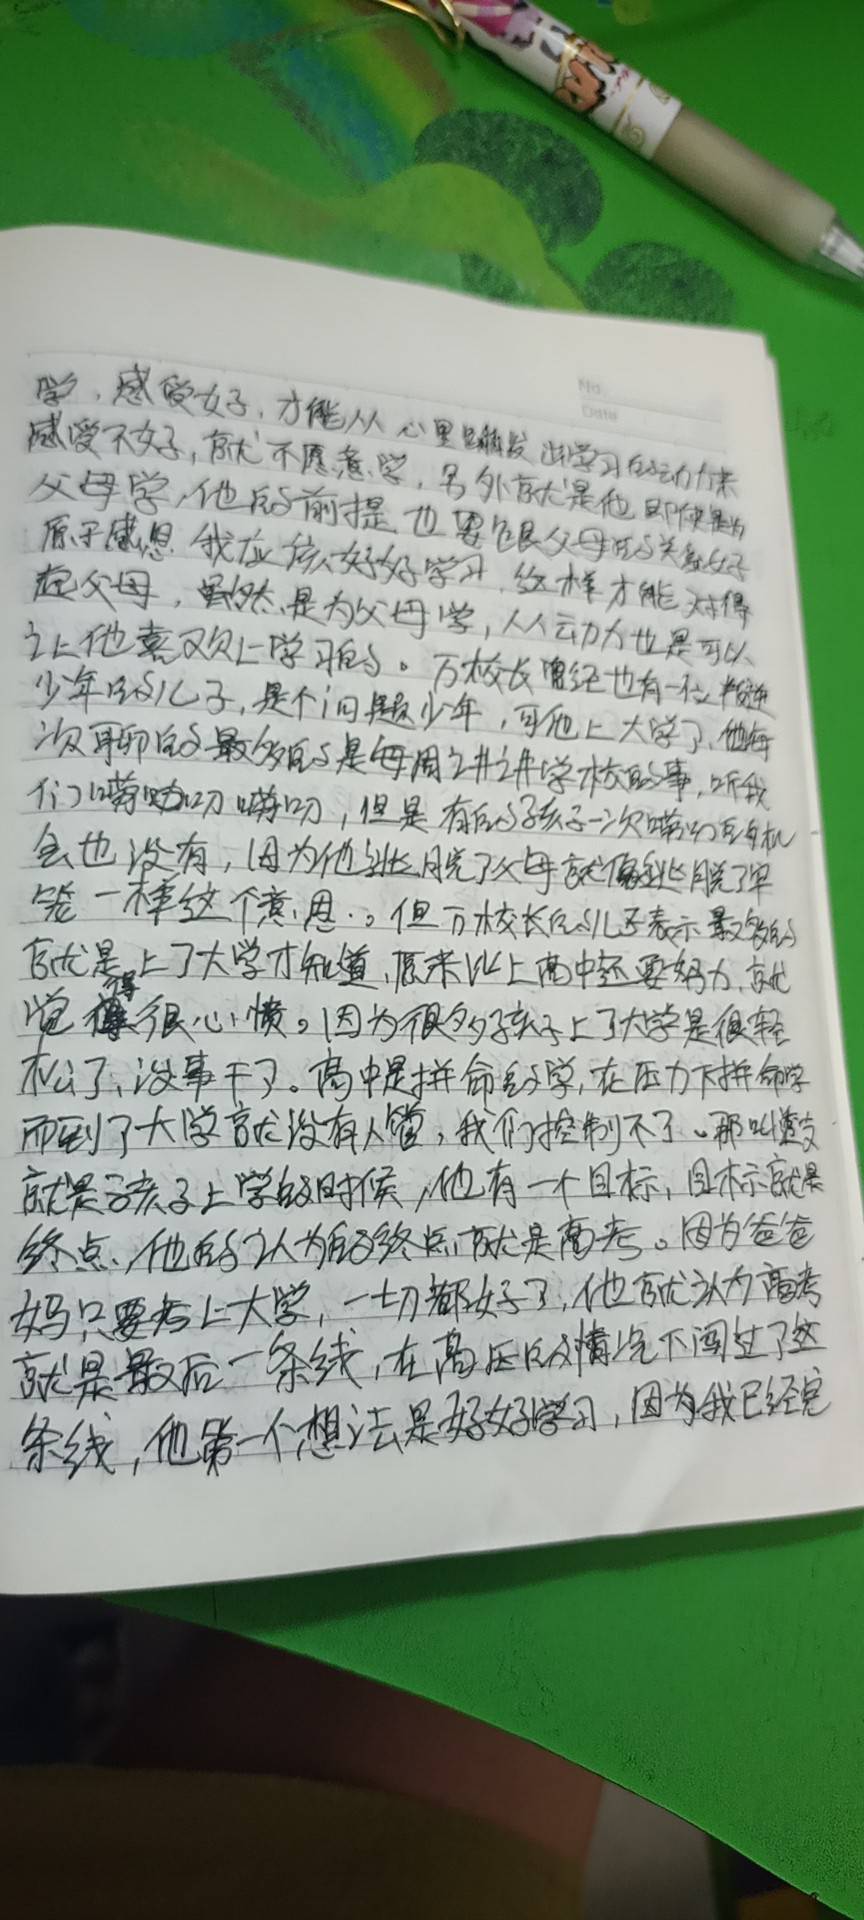 No.
Date
学，感受好，才能从心里萌发出学习的动力来
感受不好，就不愿意学，另外就是他即使是为
父母学，他的前提也要跟父母的关系好
源于感恩我应该好好学习，这样才能对得
起父母，虽然是为父母学，从动力也是可以
让他喜欢上学习的。万校长曾经也有一位叛逆
少年的儿子，是个问题少年，可他上大学了，他每
次聊的最多的是每周讲讲学校的事，听我
们唠叨唠叨，但是有的孩子一次唠叨的机
会也没有，因为他逃脱了父母就像逃脱了牢
笼一样这个意思。但万校长的儿子表示最多的
就是上了大学才知道，原来比上高中还要努力，就
觉得很心愤。因为很多孩子上了大学是很轻
松了，没事干了。高中是拼命的学，在压力下拼命学
而到了大学就没有人管，我们控制不了。那叫透支
就是孩子上学的时候，他有一个目标，目标就是
终点，他的认为的终点就是高考。因为爸爸
妈只要考上大学，一切都好了，他就认为高考
就是最后一条线，在高压的情况下闯过了这
条线，他第一个想法是好好学习，因为我已经完